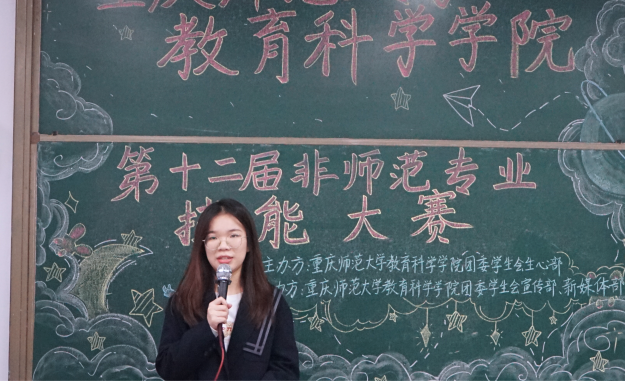 教育科学学院
第十二届非师范专业
技能大赛
主力方:重庆师范大学教育科学学院团委学生会生心部
力方:重庆师范大学教育科学学院团委学生会宣传部.新媒体部